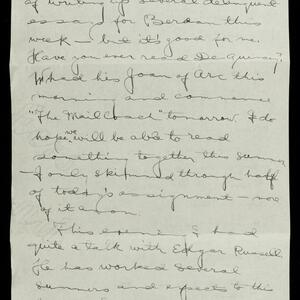 of writing up several delinquent
essays for Berdan this
week — but it's good for me.
Have you ever read De Quincey?
We had his Joan of Arc this
morning and commence
"The Mail Coach" tomorrow. I do
hope we will be able to read
something together this summer
I only skimmed through half
of today's assignment — now
This evening I had
quite a talk with Edgar Russell.
He has worked several
summers and expects to this